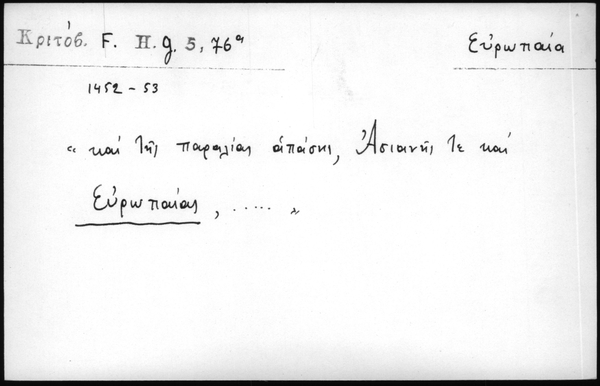 Κριτόβ. F. H. g. 5, 76ᵃ Εὐρωπαία
1452 - 53
« καὶ τῆς παραλίας ἁπάσης, Ἀσιανῆς τε καὶ
Εὐρωπαίας, ..... »